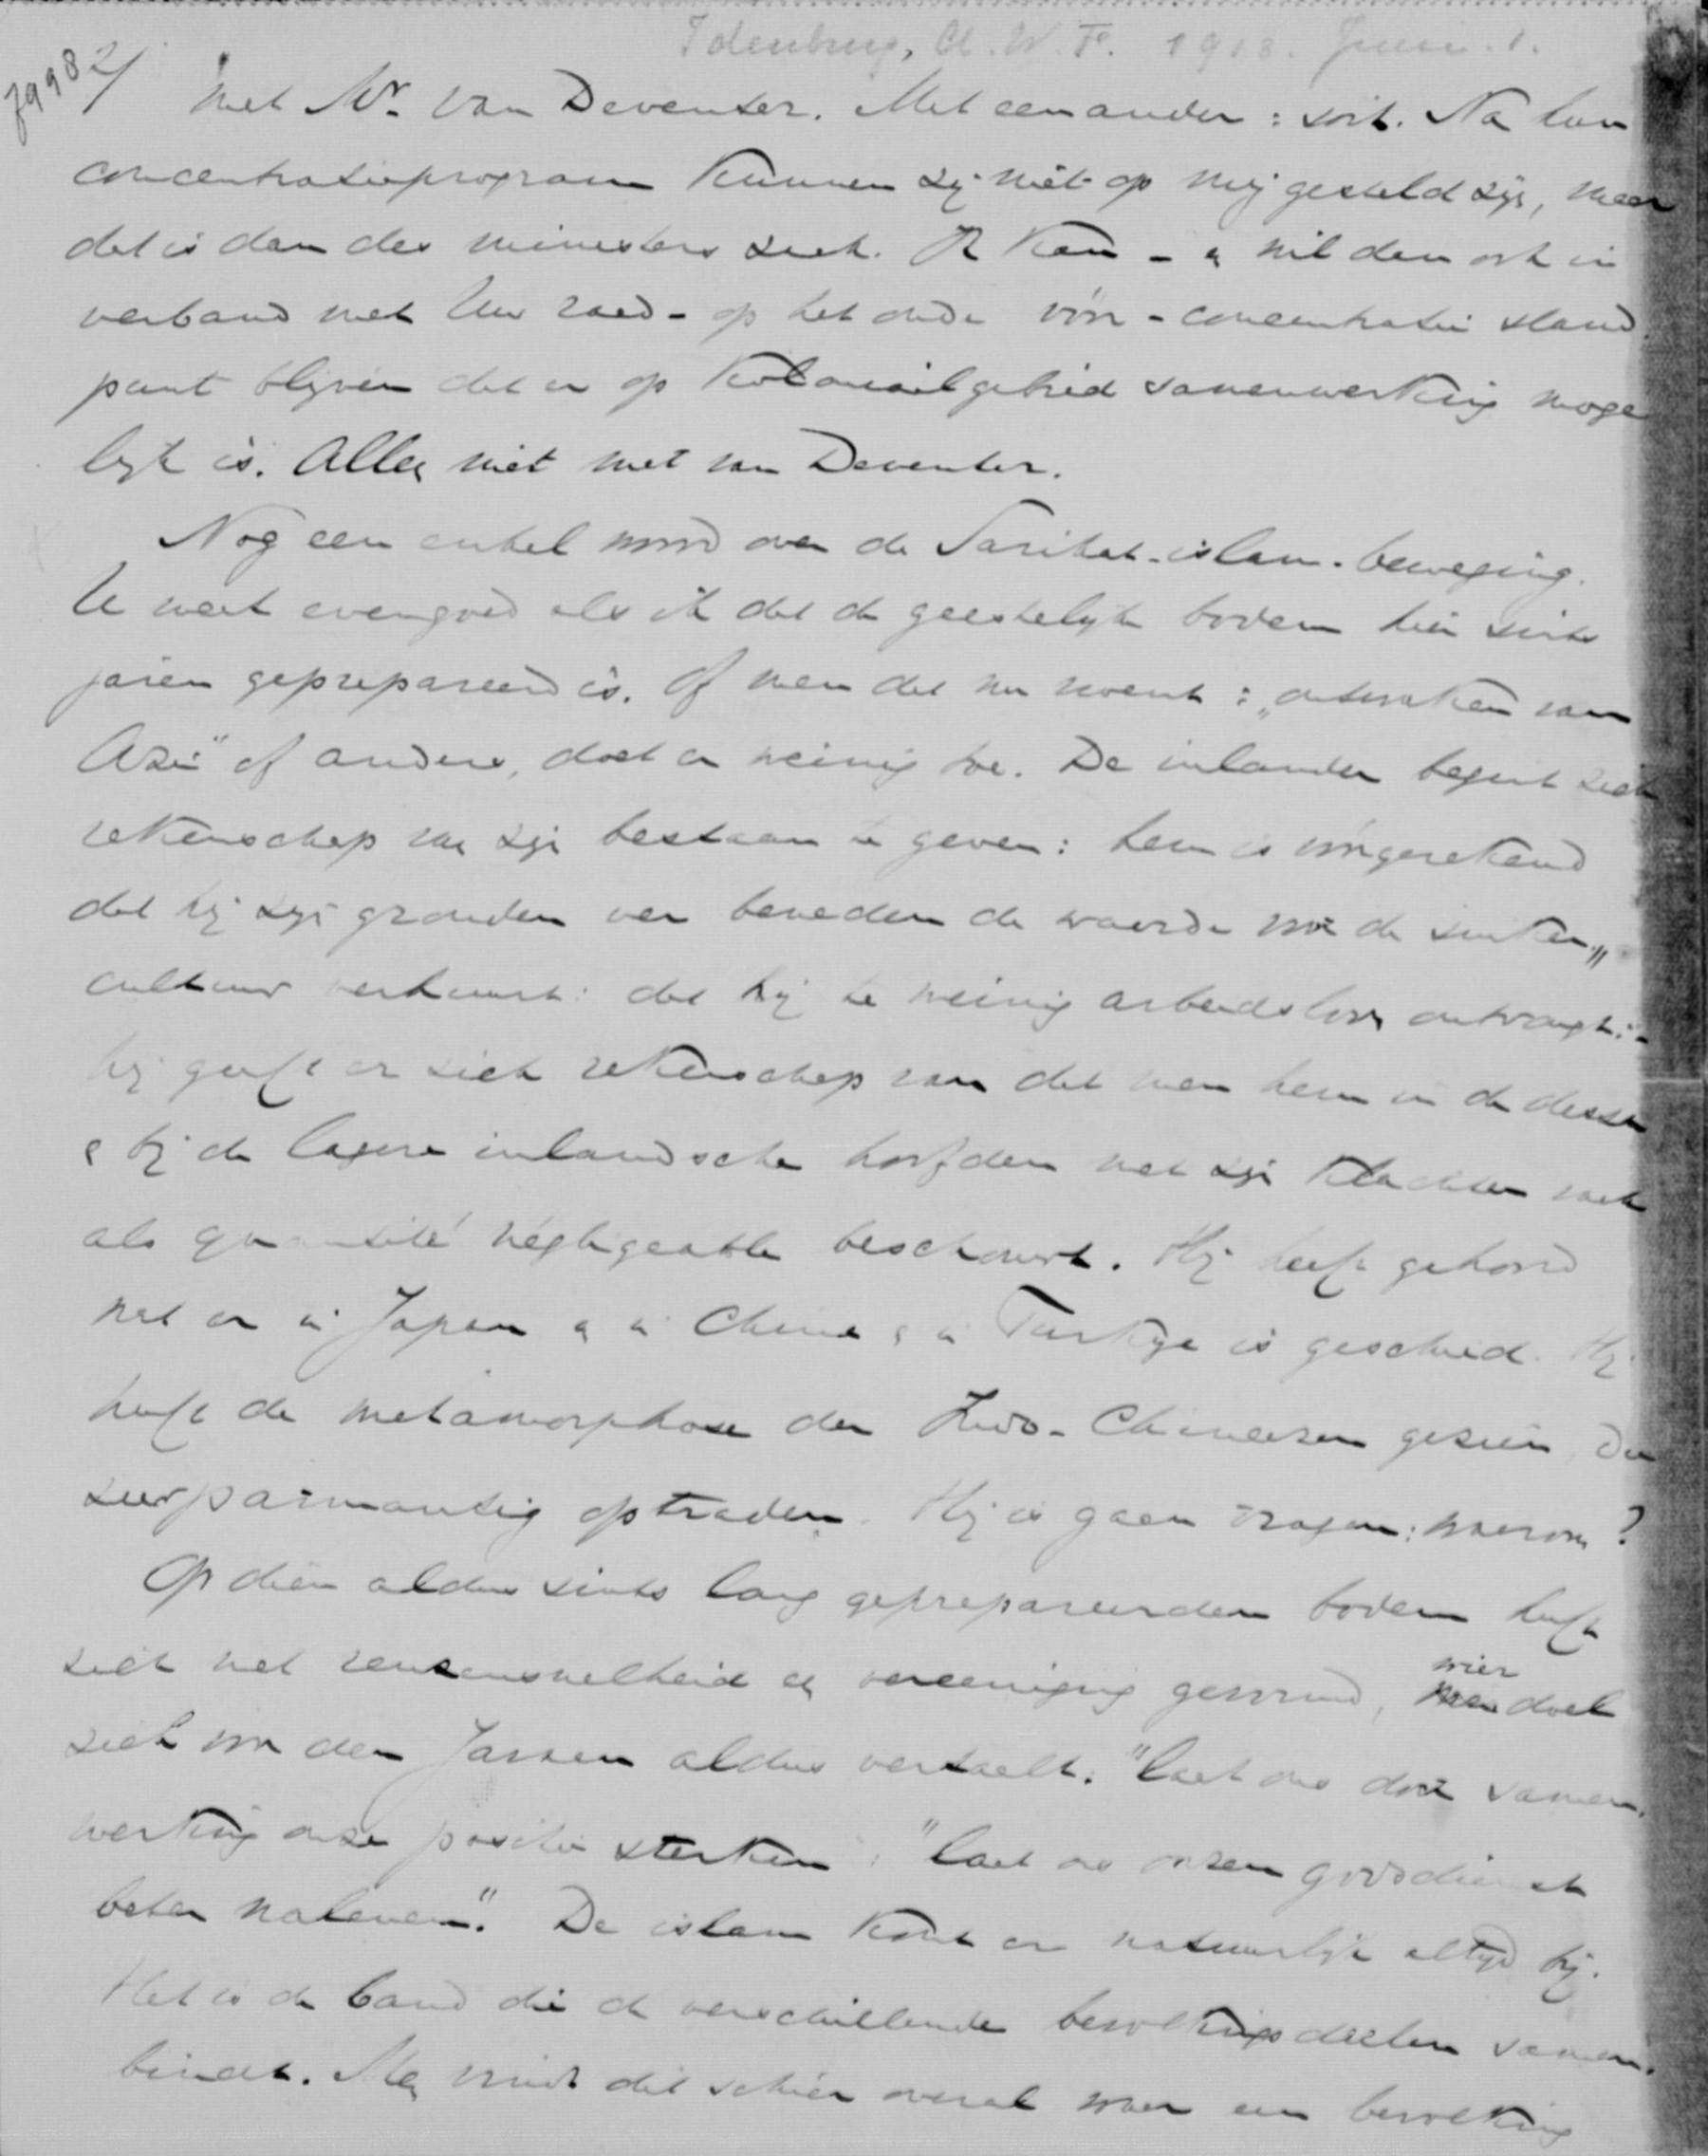 Idenburg, A.W.F. 1913. Juni. 1.
f9982/
met Mr. van Deventer. Met een ander: soit. Na hun
concentratieprogram kunnen zij niet op mij gesteld zijn, maar
dat is dan des ministers zaak. Ik kan - & wil dan ook in
verband met Uw raad - op het oude vóór-concentratie stand
punt blijven dat er op koloniaal gebied samenwerking moge
lijk is. Alleen niet met van Deventer.
Nog een enkel woord over de Sarikat-islam-beweging.
U weet evengoed als ik dat de geestelijke bodem hier sinds
jaren geprepareerd is. Of men dat nu noemt: „ontwaken van
Azië" of anders, doet er weinig toe. De inlander begint zich
rekenschap van zijn bestaan te geven: hem is vóórgerekend
dat hij zijn gronden ver beneden de waarde voor de suiker„
cultuur verhuurt: dat hij te weinig arbeidsloon ontvangt:-
hij geeft er zich rekenschap van dat men hem in de dessa
& bij de lagere inlandsche hoofden met zijn klachten vaak
als quantité négligeable beschouwt. Hij heeft gehoord
wat er in Japan & in China & in Turkije is geschied. Hij
heeft de metamorphose der Indo-Chineezen gezien, die
zeer parmantig optraden. Hij is gaan vragen: waarom?
Op dien aldus sinds lang geprepareerden bodem heeft
zich met reuzensnelheid een vereeniging gevormd, wier doel
zich voor den Javaan aldus vertaalt: "laat ons door samen.
werking onze positie sterken: "laat ons onzen godsdienst
beter naleven". De islam komt er natuurlijk altijd bij.
Het is de band die de verschillende bevolkingsdeelen samen.
bindt. Men vindt dit schier overal waar een bevolking